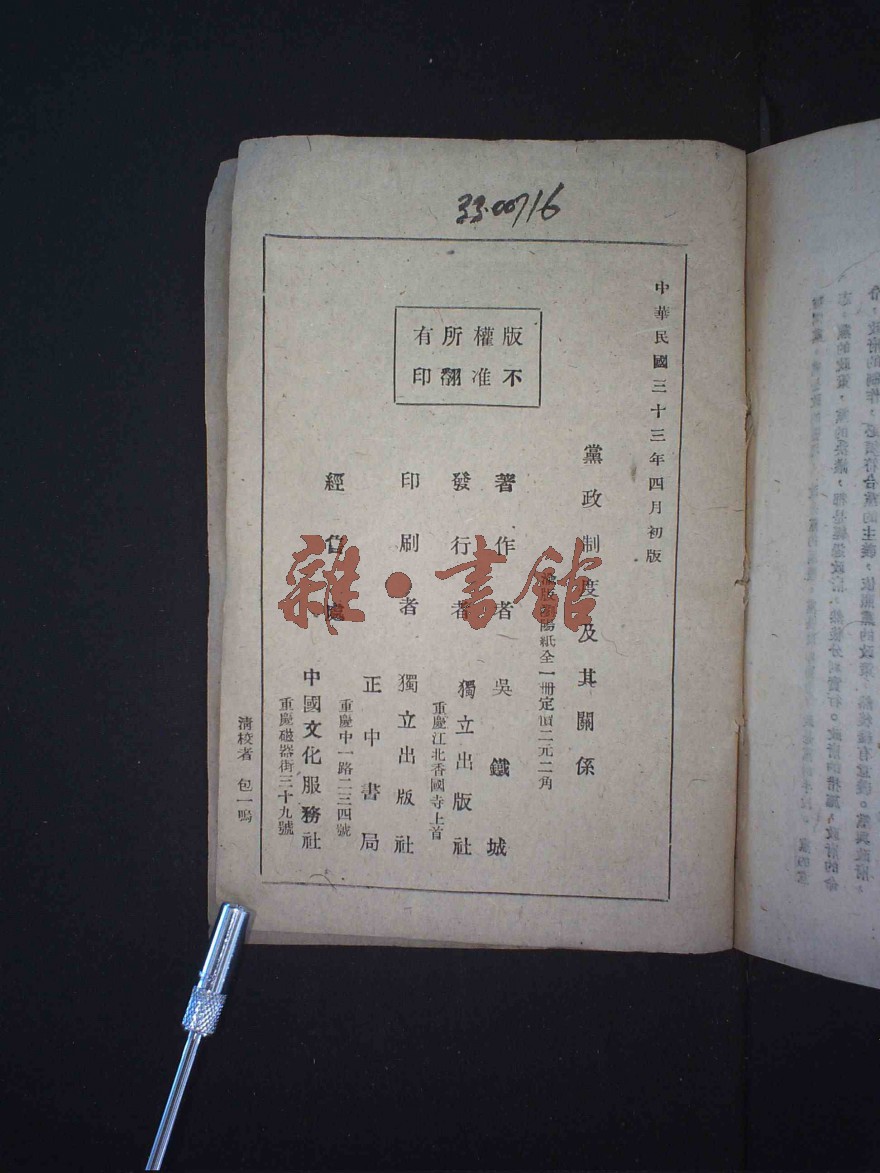 33.00716
中華民國三十三年四月初版
版權所有
不准翻印
黨政制度及其關係
紙全一冊定價二元二角
著作者 吳鐵城
發行者 獨立出版社
重慶江北香國寺上首
印刷者 獨立出版社
正中書局
重慶中一路二三四號
經售處 中國文化服務社
重慶磁器街三十九號
清校者 包一鳴
雜·書館